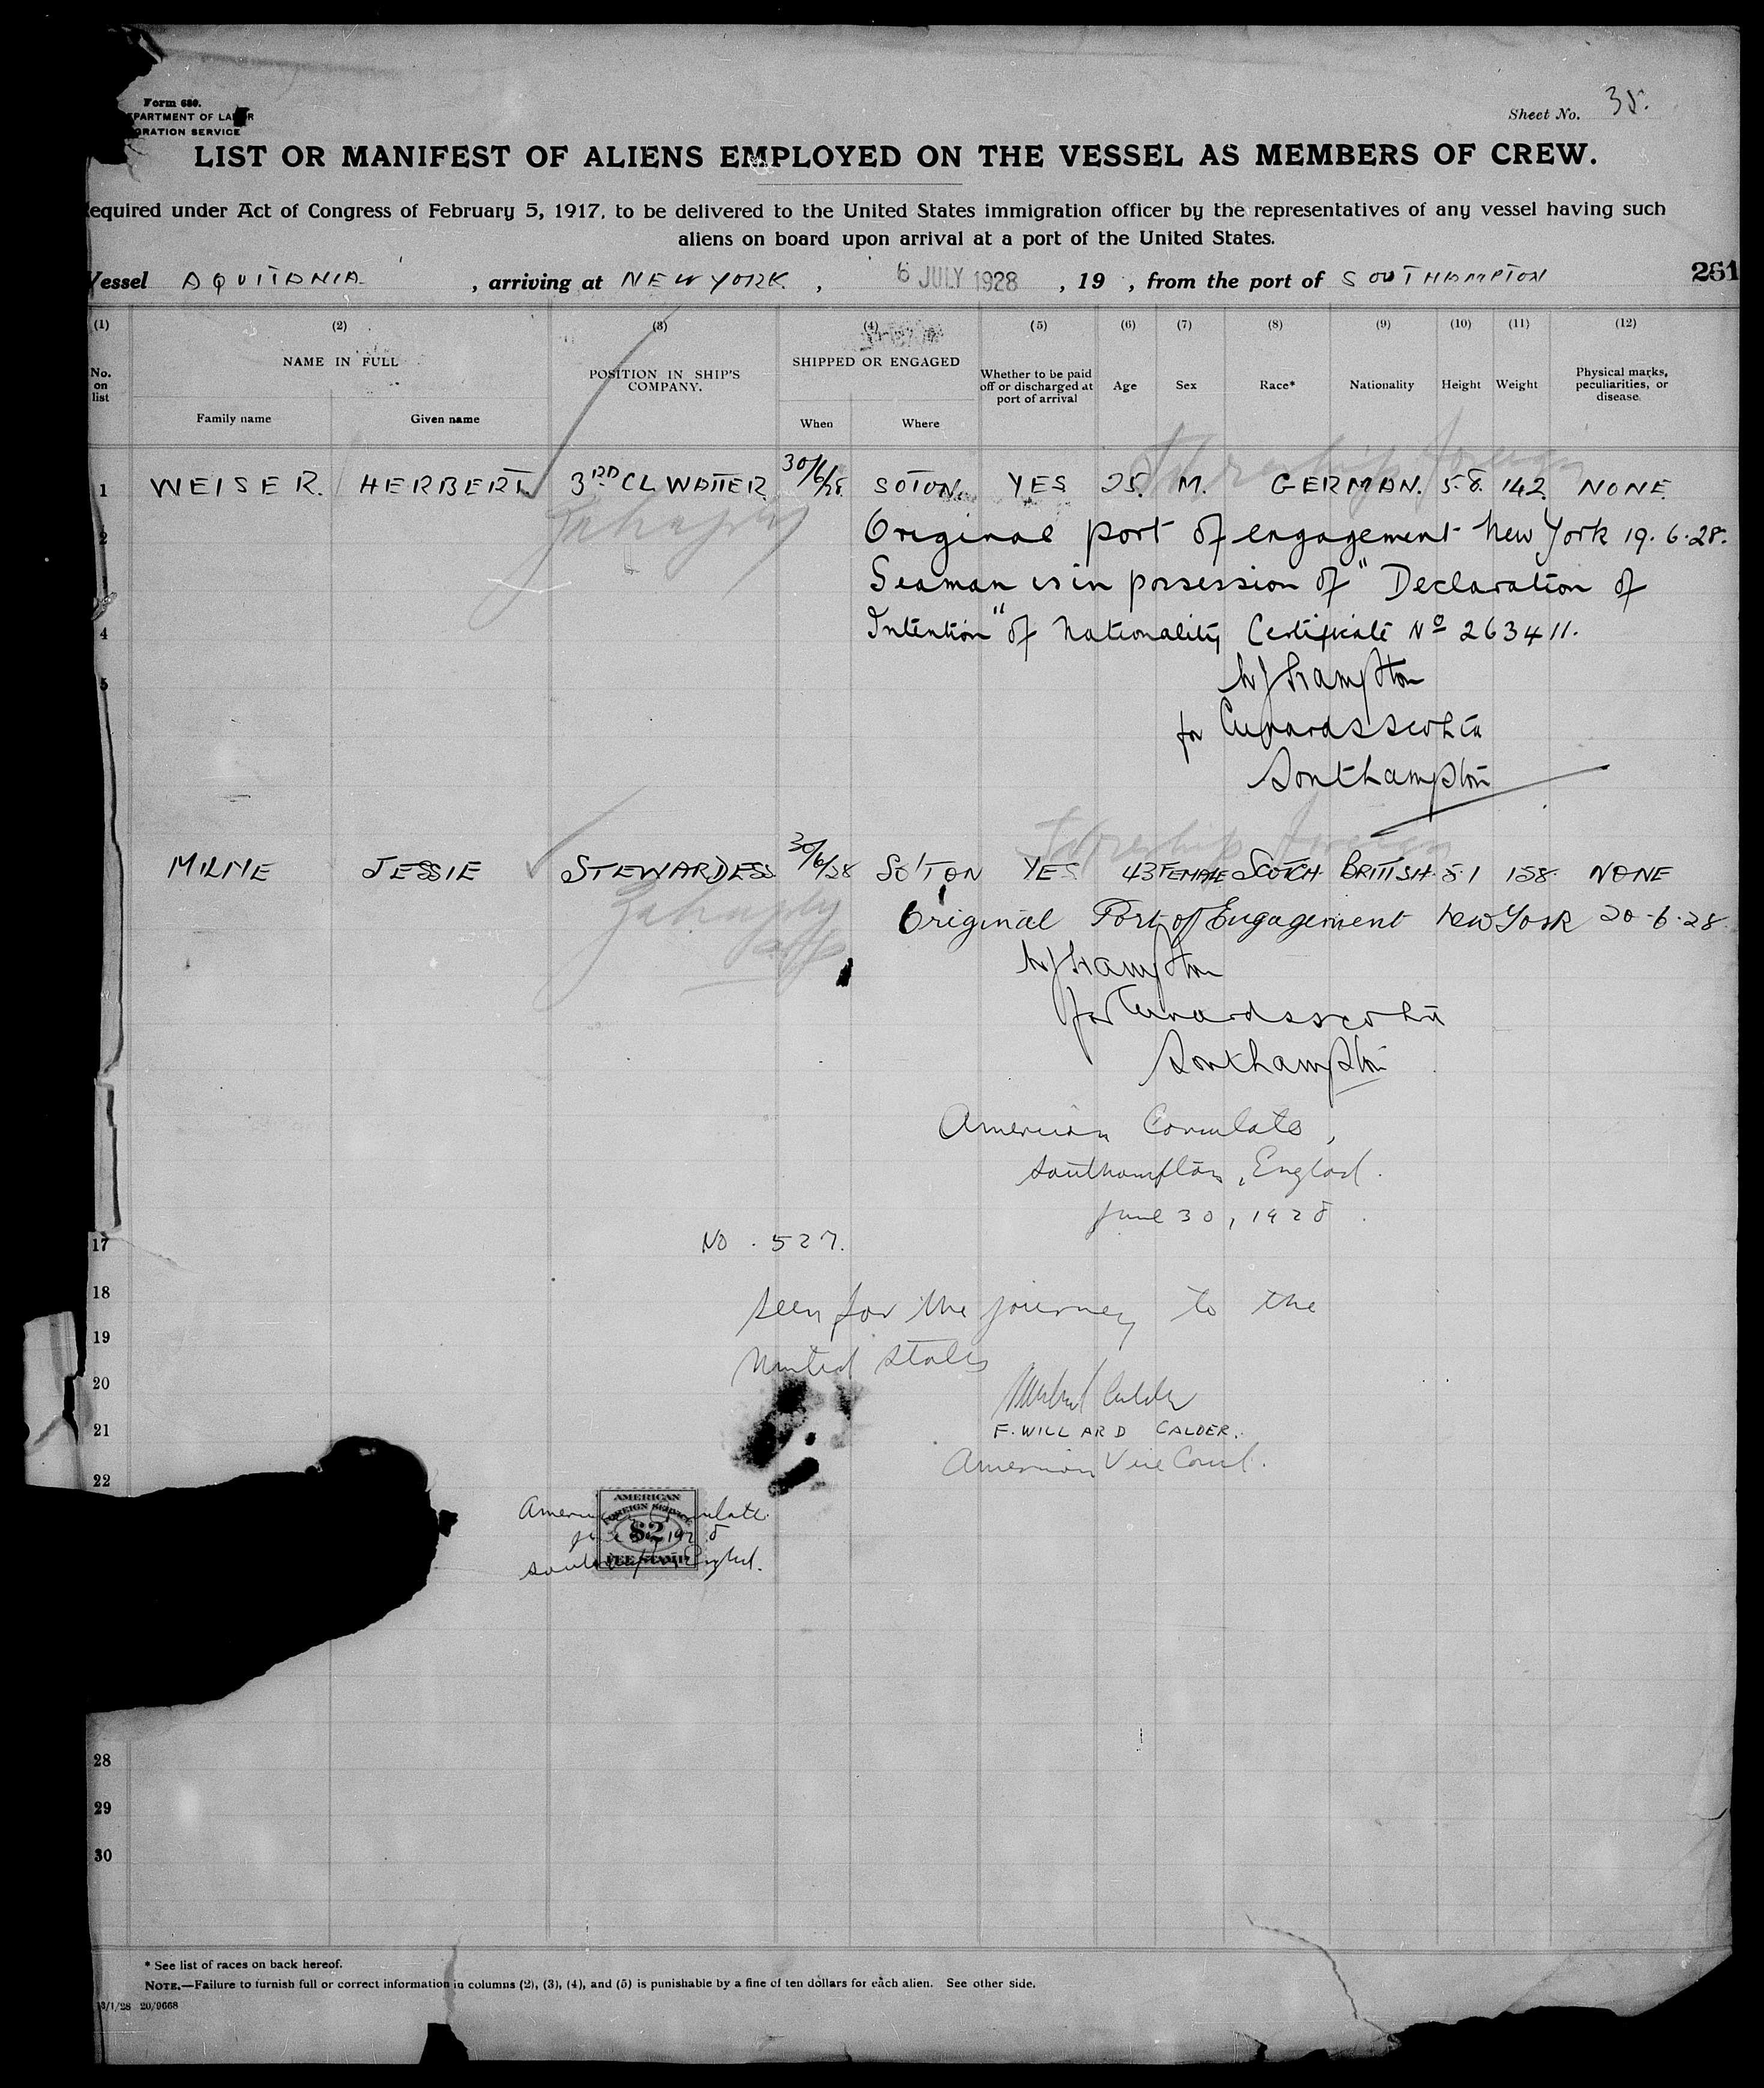 Form 680.
PARTMENT OF LABOR
GRATION SERVICE
Sheet No. 35.
LIST OR MANIFEST OF ALIENS EMPLOYED ON THE VESSEL AS MEMBERS OF CREW.
equired under Act of Congress of February 5, 1917, to be delivered to the United States immigration officer by the representatives of any vessel having such
aliens on board upon arrival at a port of the United States.
Vessel AQUITANIA , arriving at NEW YORK , 6 JULY 1928 , 19 , from the port of SOUTHAMPTON 261
(1) (2) (3) (4) (5) (6) (7) (8) (9) (10) (11) (12)
No. on list NAME IN FULL POSITION IN SHIP'S COMPANY. SHIPPED OR ENGAGED Whether to be paid off or discharged at port of arrival Age Sex Race* Nationality Height Weight Physical marks, peculiarities, or disease
Family name Given name When Where
1 WEISER. HERBERT. 3RD CL WAITER 30/6/28. SOTON. YES 25. M. GERMAN. 5·8. 142. NONE.
2 Original port of engagement New York 19.6.28.
Seaman is in possession of "Declaration of
4 Intention" of Nationality Certificate No 263411.
5
for Cunard SS Co Ltd
Southampton
MILNE JESSIE STEWARDESS 30/6/28 SO'TON YES 43 FEMALE SCOTCH BRITISH 5·1 158 NONE
Original Port of Engagement New York 20-6-28.
for Cunard SS Co Ltd
Southampton
American Consulate,
Southampton, England.
June 30, 1928.
17
No. 527.
18 Seen for the journey to the
19
United States
20
F. WILLARD CALDER.
21
American Vice Consul.
22
AMERICAN
FOREIGN SERVICE
$2
FEE STAMP
American Consulate
June 30 1928
Southampton, England.
28
29
30
* See list of races on back hereof.
NOTE.—Failure to furnish full or correct information in columns (2), (3), (4), and (5) is punishable by a fine of ten dollars for each alien. See other side.
3/1/28 20/9668